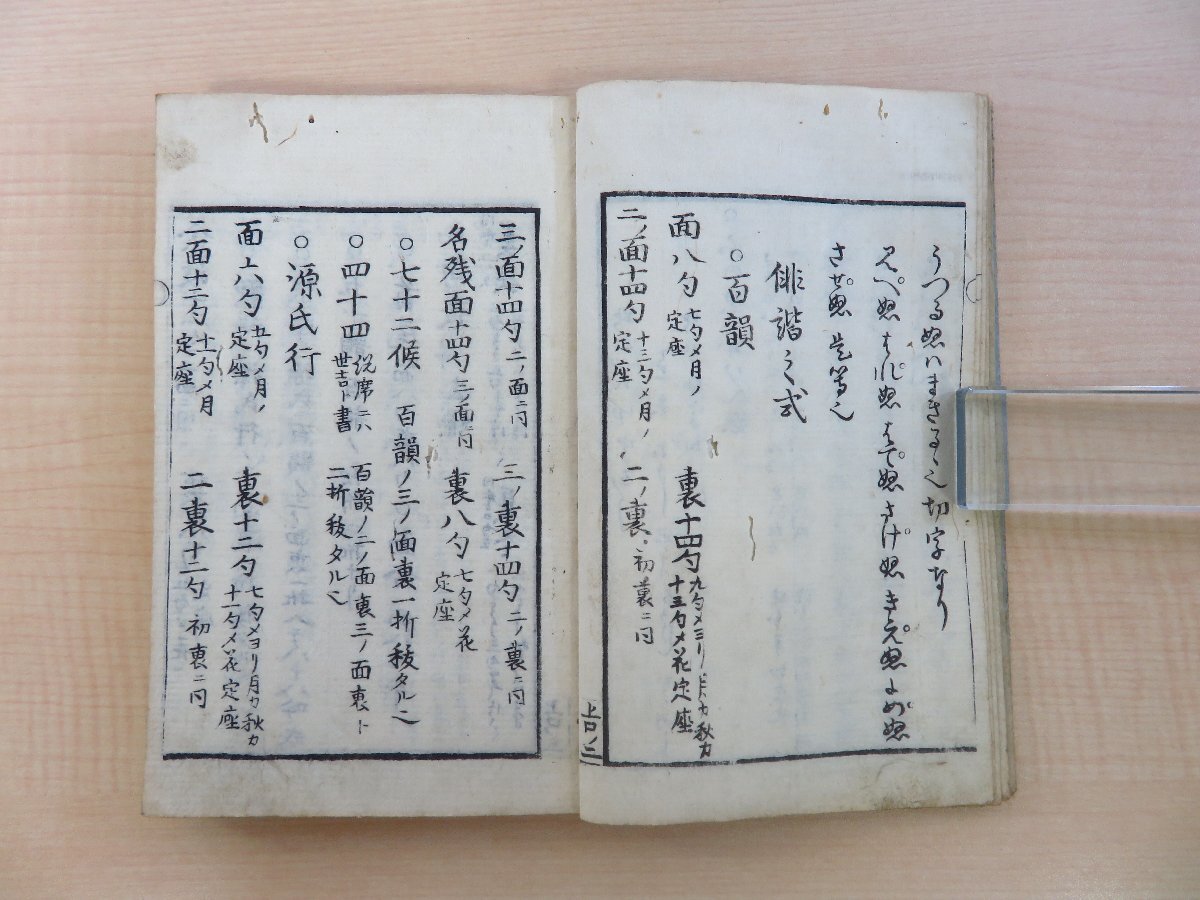 うつるぬハまきるゝ之切字なり
さぬ 是等之
俳諧之式
○百韻
面八句 七句メ月ノ定座 裏十四句 九句メヨリ月カ秋カ 十三句メ花定座
二ノ面十四句 十三句メ月ノ定座 二ノ裏 初裏ニ同
上ノ二
三ノ面十四句 二ノ面ニ同 三ノ裏十四句 二ノ裏ニ同
名残面十四句 三ノ面ニ同 裏八句 七句メ花定座
○七十二候 百韻ノ三ノ面裏一折タル之
○四十四 世吉ト書 百韻ノ二ノ面裏三ノ面裏ト二折タル之
○源氏行
面六句 五句メ月ノ定座 裏十二句 七句メヨリ月カ秋カ 十一句メ花定座
二面十二句 十一句メ月定座 二裏十二句 初裏ニ同